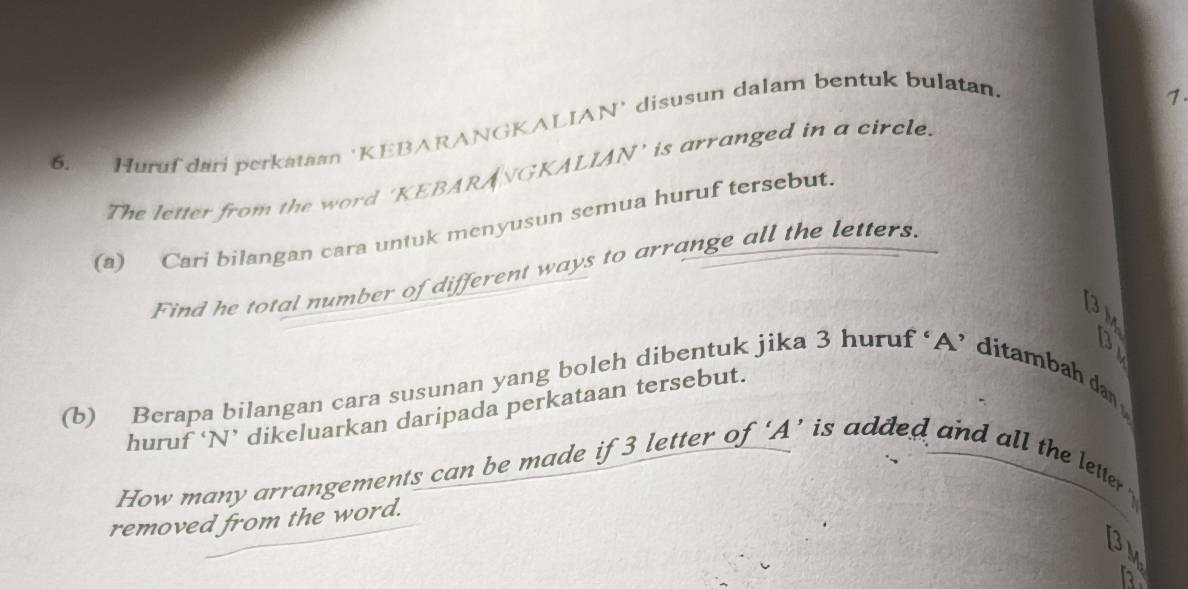 7.
6. Huruf dari perkataan 'KEBARANGKALIAN' disusun dalam bentuk bulatan.
The letter from the word 'KEBARANGKALIAN' is arranged in a circle.
(a) Cari bilangan cara untuk menyusun semua huruf tersebut.
Find he total number of different ways to arrange all the letters.
[3
[3
(b) Berapa bilangan cara susunan yang boleh dibentuk jika 3 huruf 'A' ditambah dan
huruf 'N' dikeluarkan daripada perkataan tersebut.
How many arrangements can be made if 3 letter of 'A' is added and all the letter
removed from the word.
[3
[3